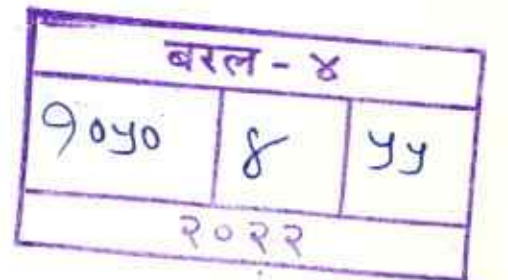 बरल - ४
१०५० ४ ५५
२०२२